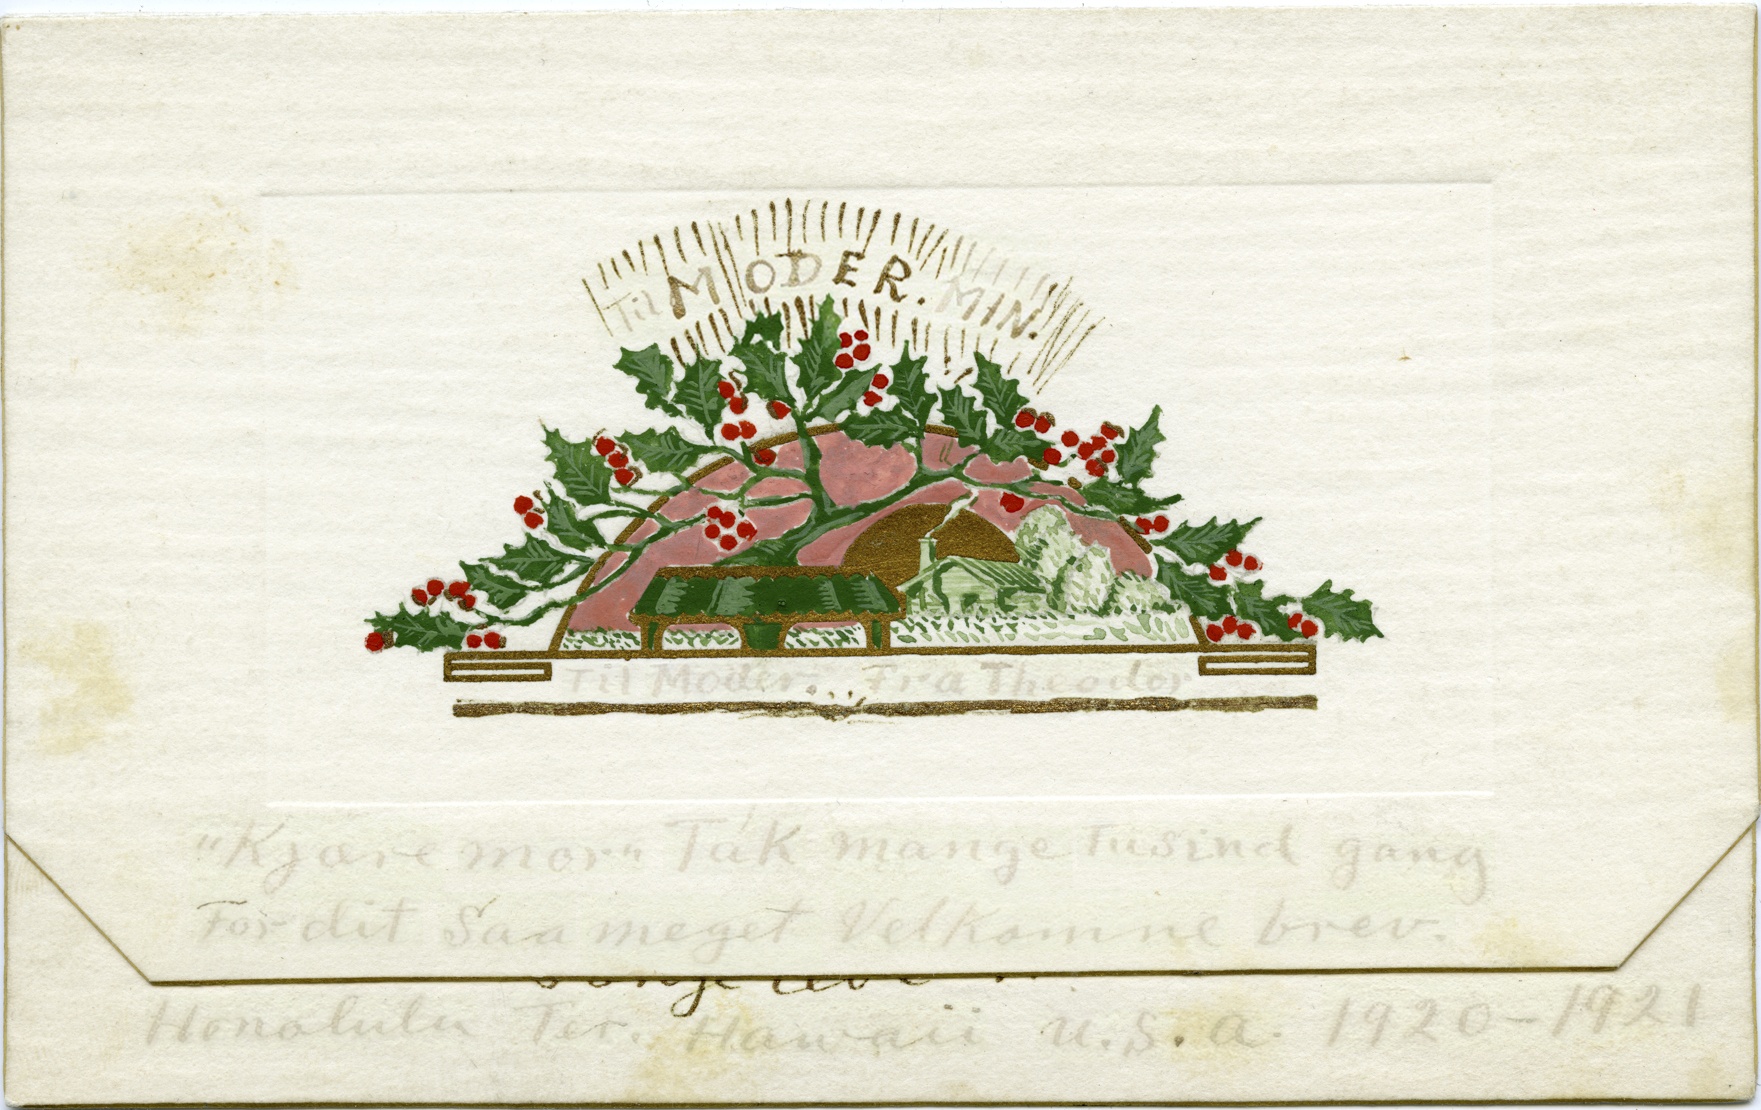 Til MODER. MIN.
Til Moder... Fra Theodor
"Kjære mor" Tak mange Tusind gang
For dit Saa meget Velkomne brev.
Honolulu Ter. Hawaii U.S.a. 1920-1921